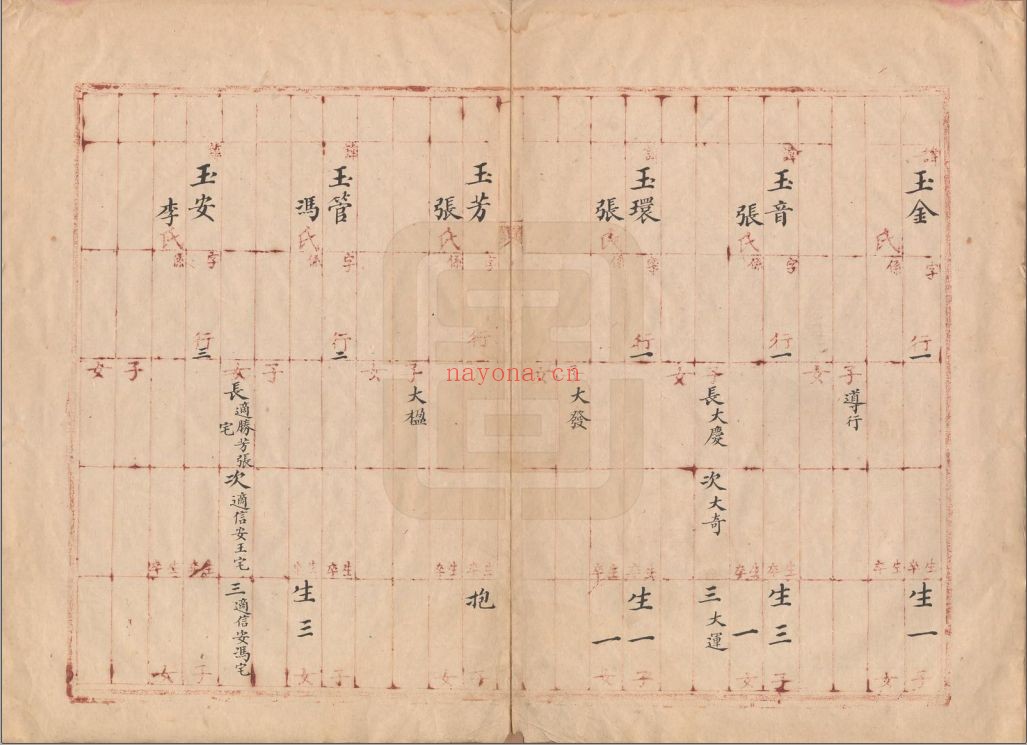 諱玉金
字
行一
氏
係
生卒
生卒
生一
子
女
子 遵行
女
諱玉音
字
行一
張氏
係
生卒
生卒
生三
子
一
女
子 長大慶 次大奇 三大運
女
諱玉環
字
行一
張氏
係
生卒
生卒
生一
子
一
女
大發
女
玉芳
字
行
張氏
係
生卒
生卒
抱
子
女
子 大楹
女
諱玉管
字
行二
馮氏
係
生卒
生卒
子
生三
女
子
女 長適勝芳張宅 次適信安王宅 三適信安馮宅
諱玉安
字
行三
李氏
係
生卒
生卒
子
女
子
女
nayona.cn